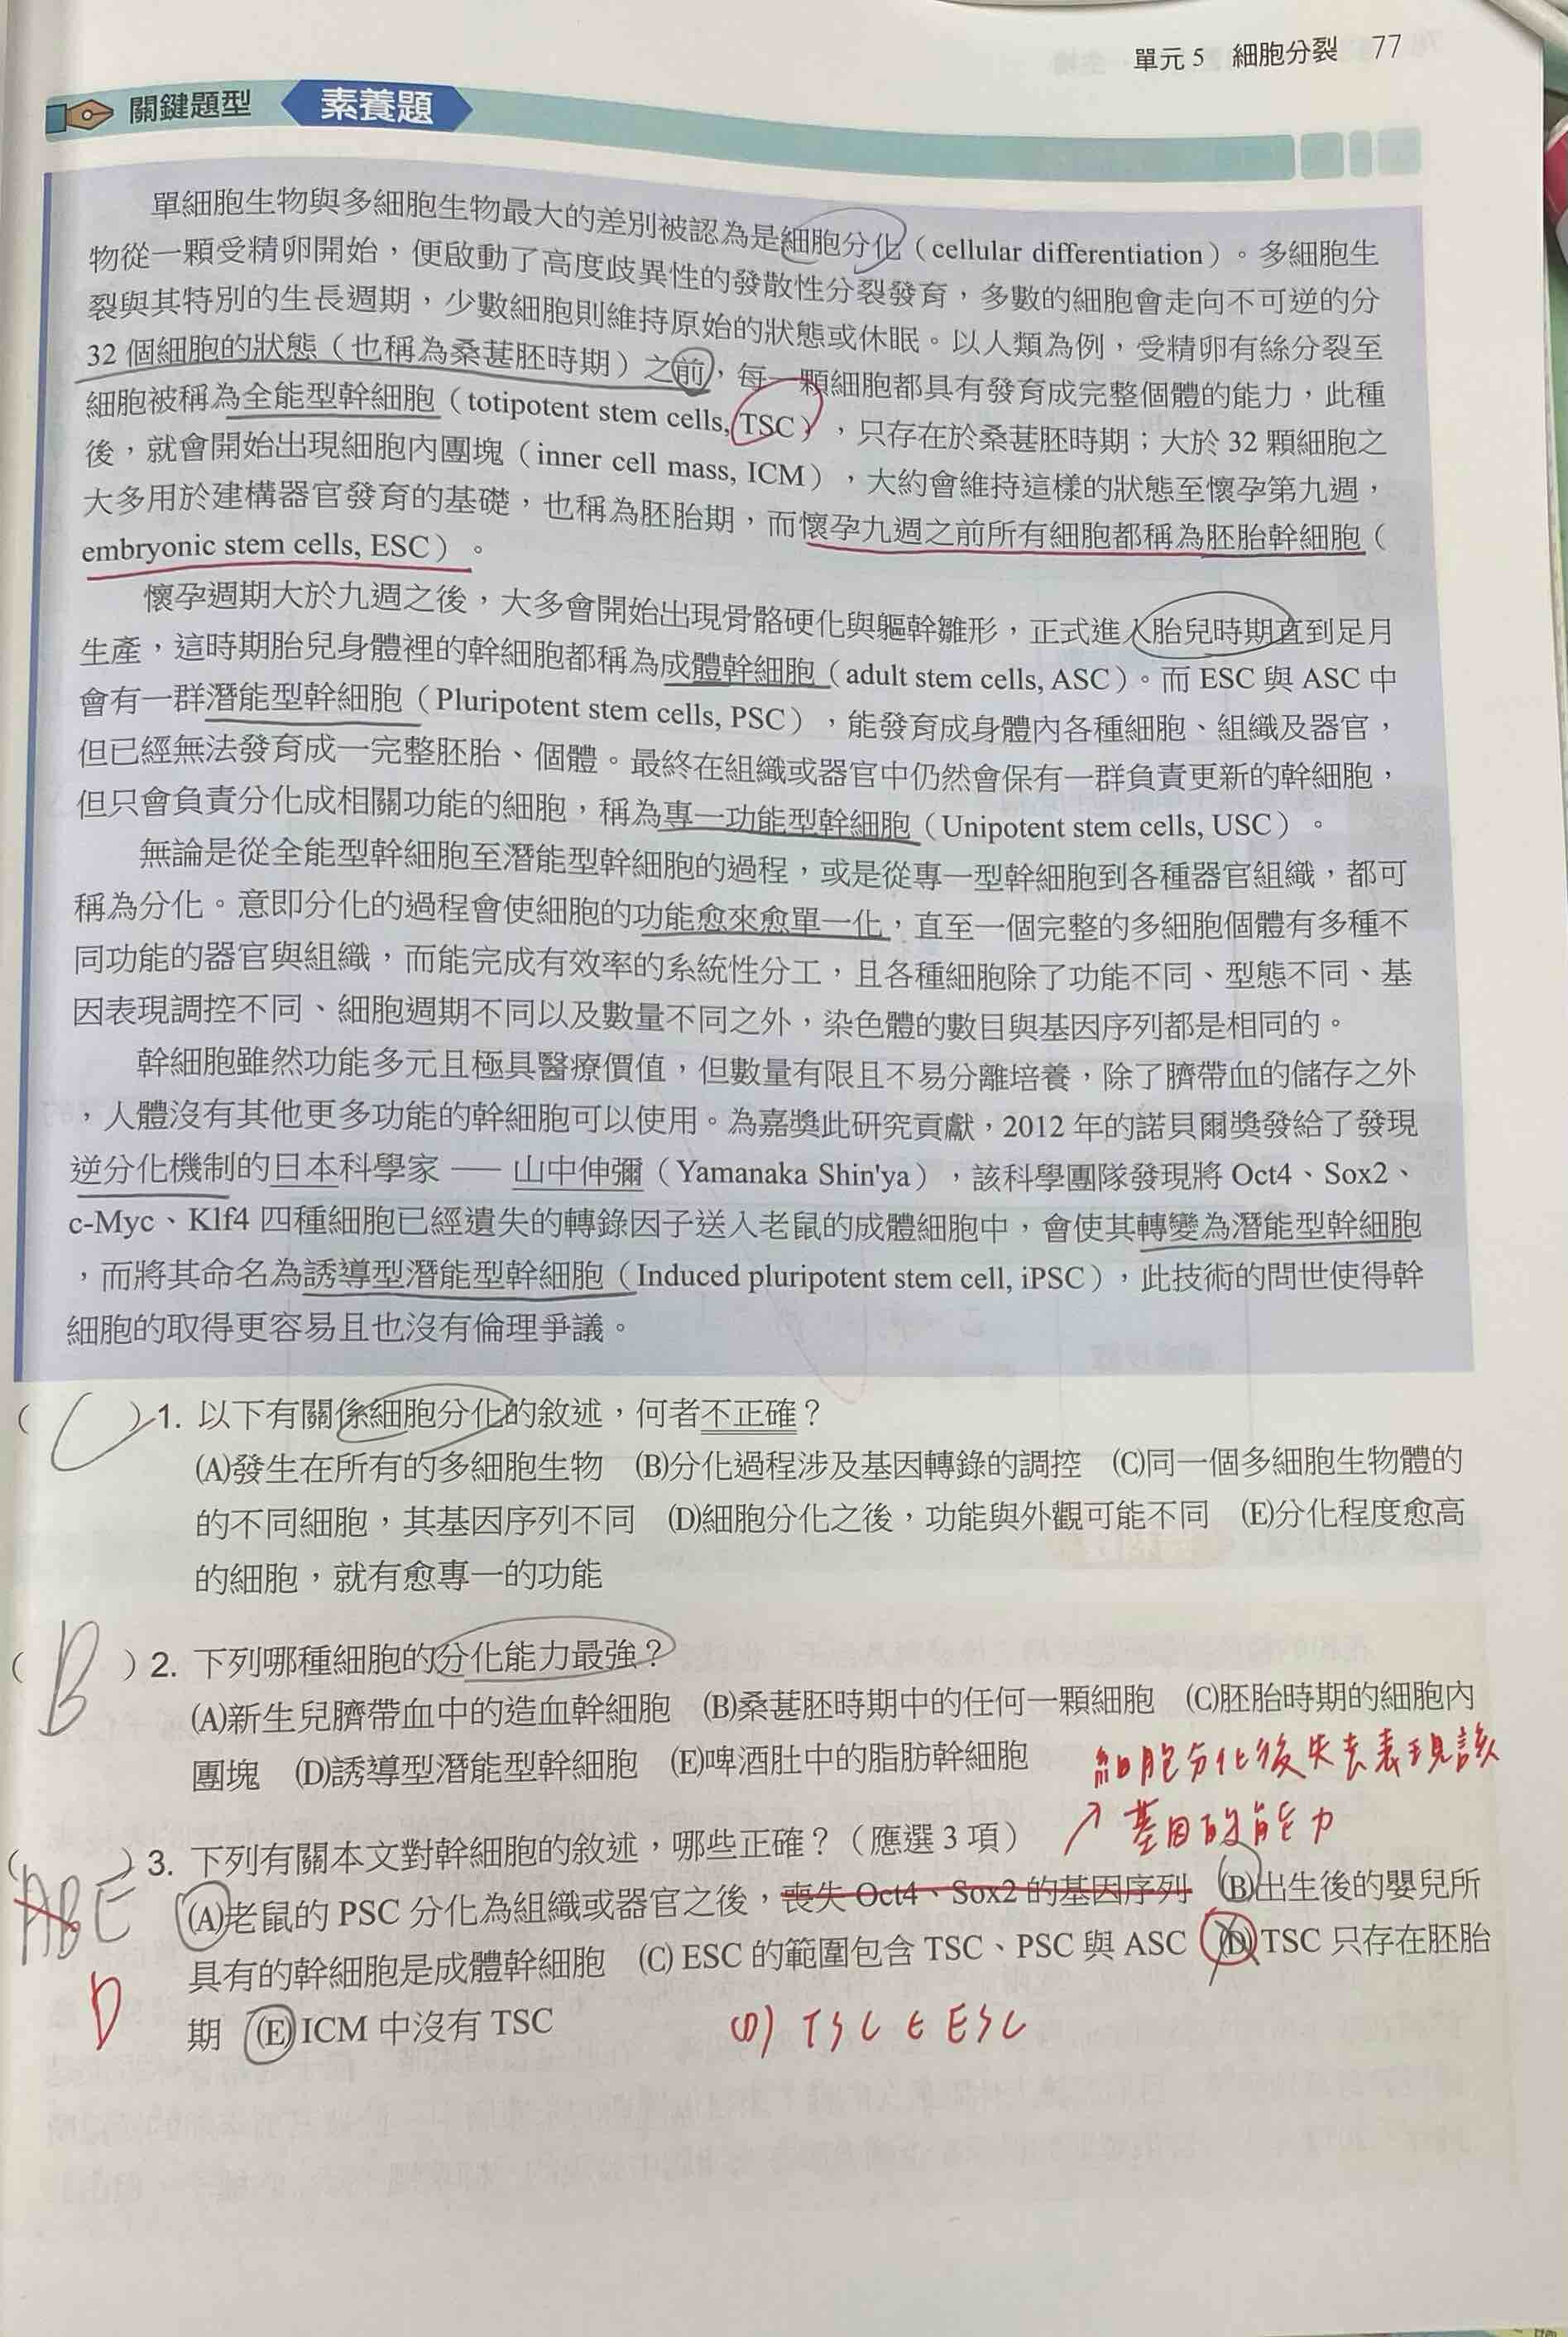 單元 5 細胞分裂 77
關鍵題型 素養題
單細胞生物與多細胞生物最大的差別被認為是細胞分化（cellular differentiation）。多細胞生
物從一顆受精卵開始，便啟動了高度歧異性的發散性分裂發育，多數的細胞會走向不可逆的分
裂與其特別的生長週期，少數細胞則維持原始的狀態或休眠。以人類為例，受精卵有絲分裂至
32 個細胞的狀態（也稱為桑葚胚時期）之前，每一顆細胞都具有發育成完整個體的能力，此種
細胞被稱為全能型幹細胞（totipotent stem cells, TSC），只存在於桑葚胚時期；大於 32 顆細胞之
後，就會開始出現細胞內團塊（inner cell mass, ICM），大約會維持這樣的狀態至懷孕第九週，
大多用於建構器官發育的基礎，也稱為胚胎期，而懷孕九週之前所有細胞都稱為胚胎幹細胞（
embryonic stem cells, ESC）。
懷孕週期大於九週之後，大多會開始出現骨骼硬化與軀幹雛形，正式進入胎兒時期直到足月
生產，這時期胎兒身體裡的幹細胞都稱為成體幹細胞（adult stem cells, ASC）。而 ESC 與 ASC 中
會有一群潛能型幹細胞（Pluripotent stem cells, PSC），能發育成身體內各種細胞、組織及器官，
但已經無法發育成一完整胚胎、個體。最終在組織或器官中仍然會保有一群負責更新的幹細胞，
但只會負責分化成相關功能的細胞，稱為專一功能型幹細胞（Unipotent stem cells, USC）。
無論是從全能型幹細胞至潛能型幹細胞的過程，或是從專一型幹細胞到各種器官組織，都可
稱為分化。意即分化的過程會使細胞的功能愈來愈單一化，直至一個完整的多細胞個體有多種不
同功能的器官與組織，而能完成有效率的系統性分工，且各種細胞除了功能不同、型態不同、基
因表現調控不同、細胞週期不同以及數量不同之外，染色體的數目與基因序列都是相同的。
幹細胞雖然功能多元且極具醫療價值，但數量有限且不易分離培養，除了臍帶血的儲存之外
，人體沒有其他更多功能的幹細胞可以使用。為嘉獎此研究貢獻，2012 年的諾貝爾獎發給了發現
逆分化機制的日本科學家 —— 山中伸彌（Yamanaka Shin'ya），該科學團隊發現將 Oct4、Sox2、
c-Myc、Klf4 四種細胞已經遺失的轉錄因子送入老鼠的成體細胞中，會使其轉變為潛能型幹細胞
，而將其命名為誘導型潛能型幹細胞（Induced pluripotent stem cell, iPSC），此技術的問世使得幹
細胞的取得更容易且也沒有倫理爭議。
( C ) 1. 以下有關係細胞分化的敘述，何者不正確？
(A)發生在所有的多細胞生物 (B)分化過程涉及基因轉錄的調控 (C)同一個多細胞生物體的
的不同細胞，其基因序列不同 (D)細胞分化之後，功能與外觀可能不同 (E)分化程度愈高
的細胞，就有愈專一的功能
( B ) 2. 下列哪種細胞的分化能力最強？
(A)新生兒臍帶血中的造血幹細胞 (B)桑葚胚時期中的任何一顆細胞 (C)胚胎時期的細胞內
團塊 (D)誘導型潛能型幹細胞 (E)啤酒肚中的脂肪幹細胞
細胞分化後失去表現該
↗ 基因的能力
( ABE ) 3. 下列有關本文對幹細胞的敘述，哪些正確？（應選 3 項）
(A)老鼠的 PSC 分化為組織或器官之後，喪失 Oct4、Sox2 的基因序列 (B)出生後的嬰兒所
具有的幹細胞是成體幹細胞 (C) ESC 的範圍包含 TSC、PSC 與 ASC (D)TSC 只存在胚胎
D
期 (E)ICM 中沒有 TSC
(D) TSC ∈ ESC